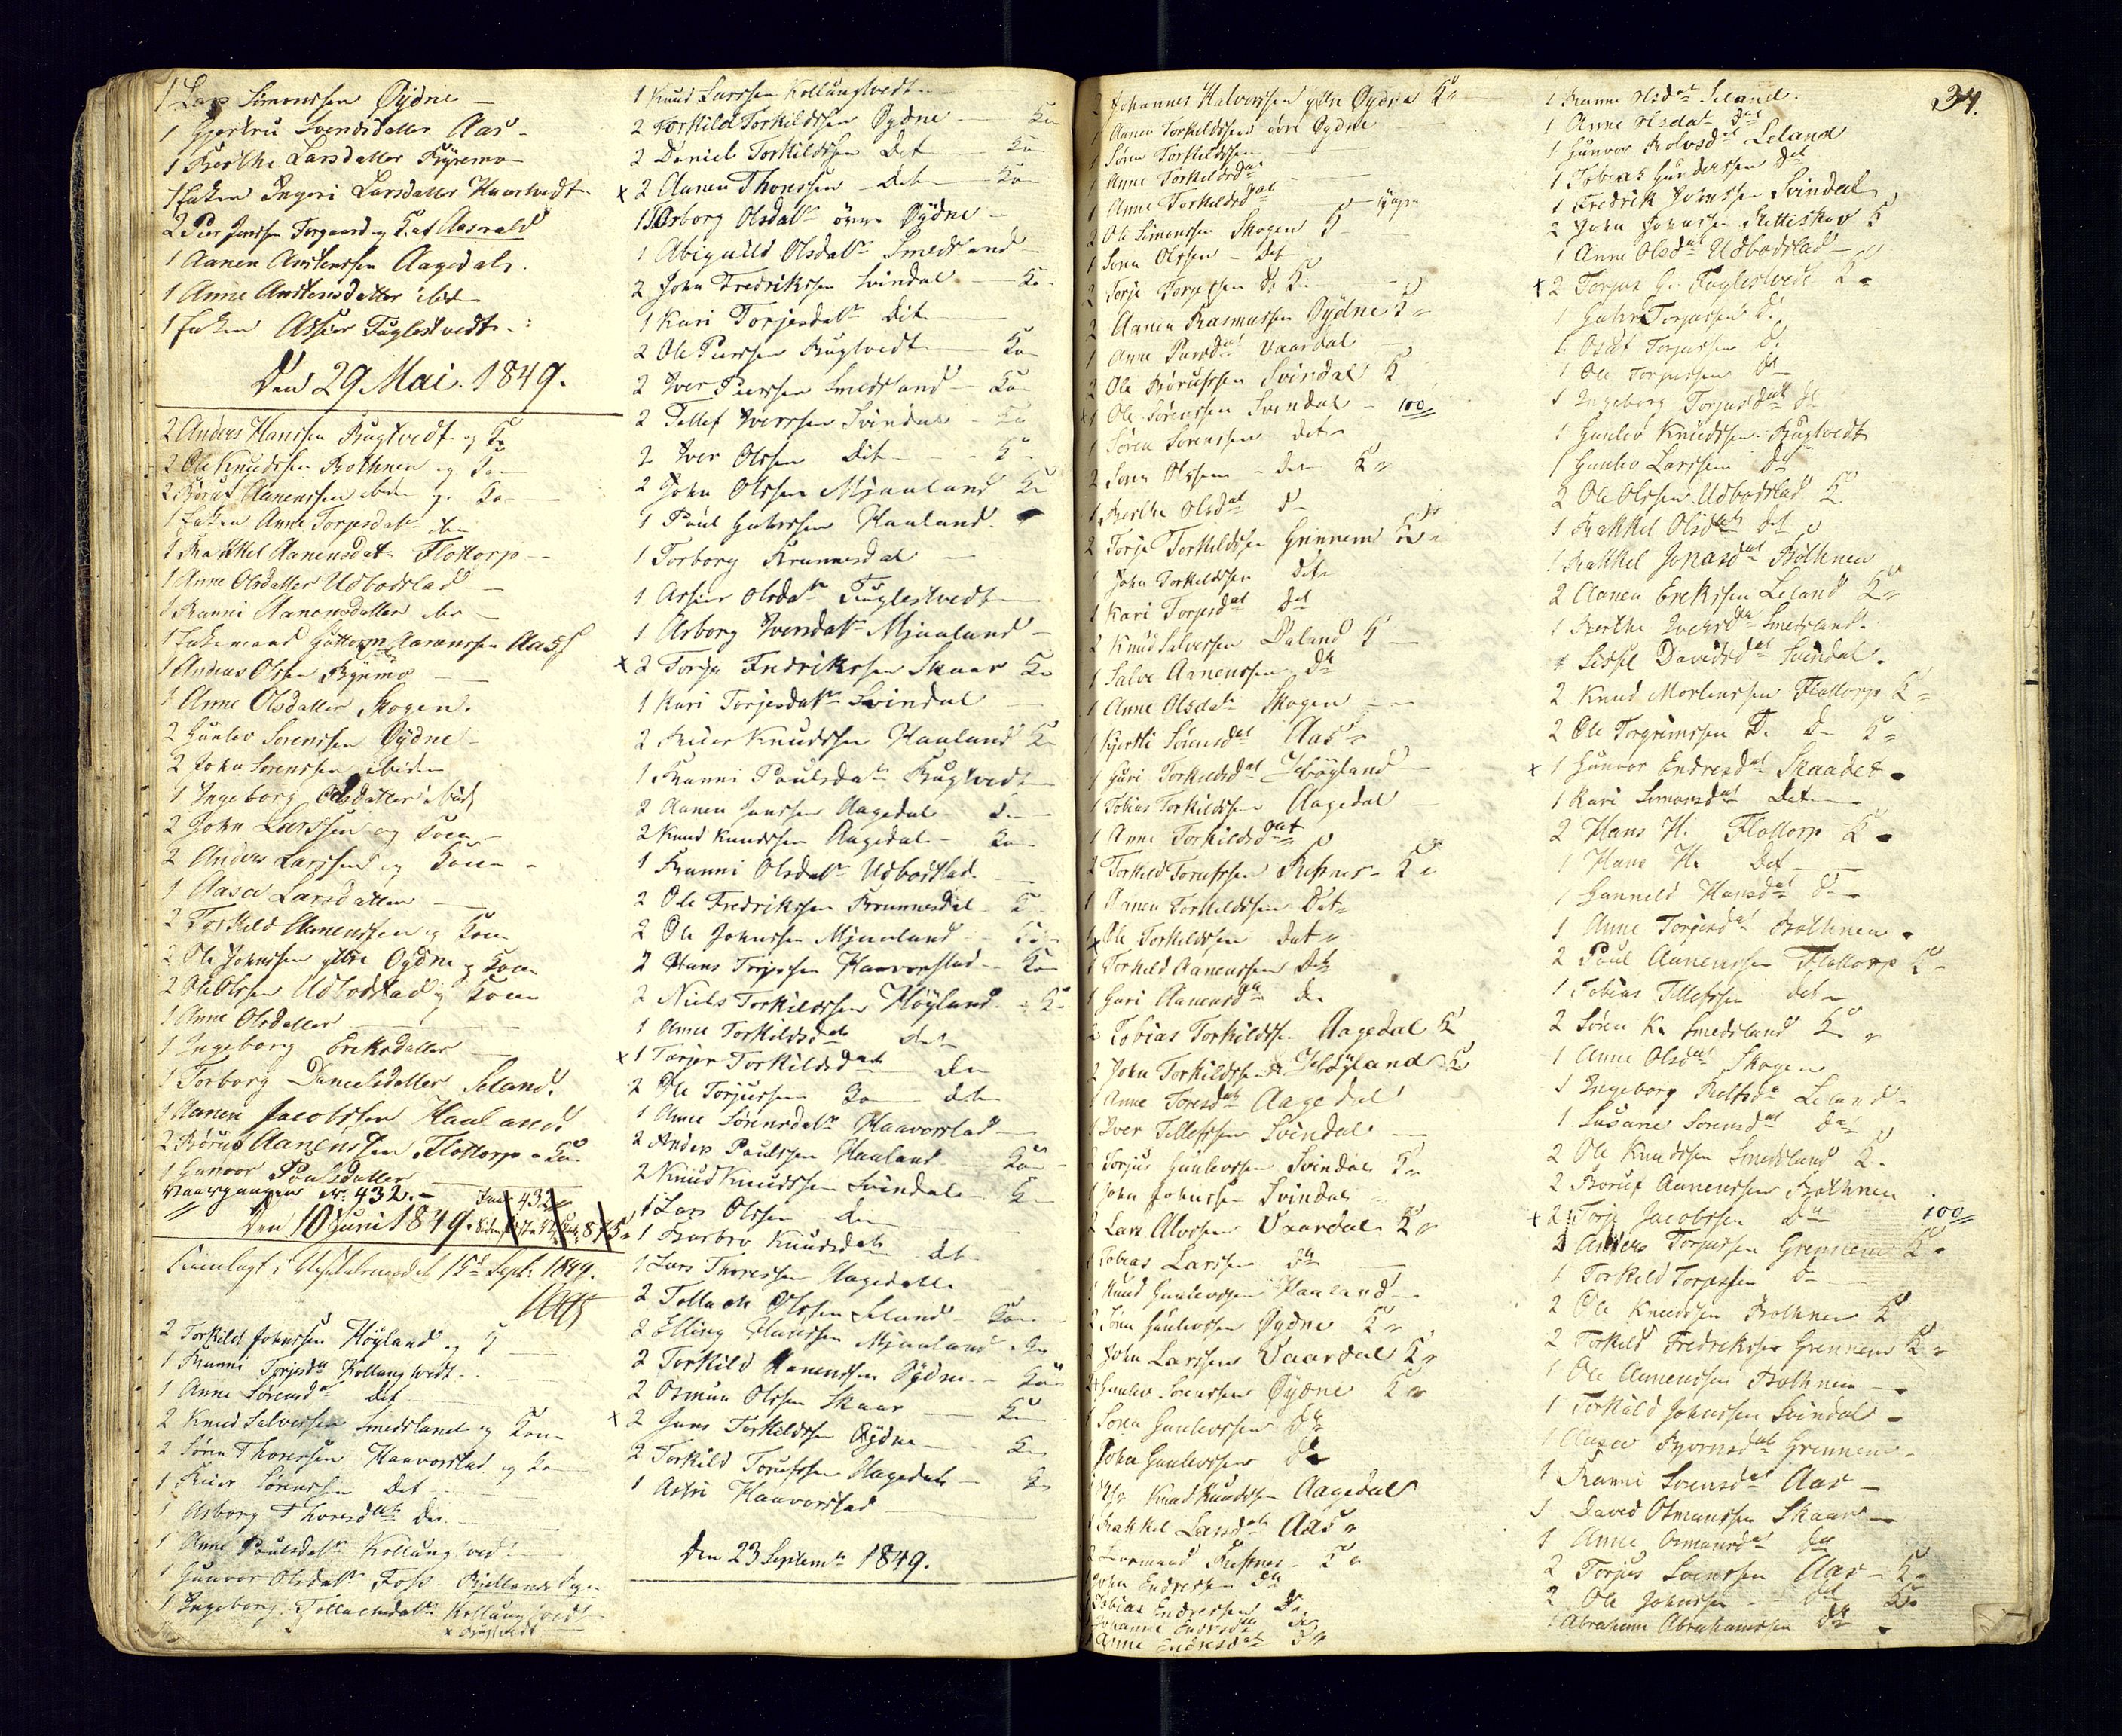 1 Lars Simonssen Öÿdne
1 Gjertru Svendsdatter Aas
1 Berthe Larsdatter Bÿremo
1 Enken Ingeri Larsdatter Haartvedt
2 Peer Jenssen Torgaard og K. af Aaserald
1 Aanen Arstenssen Aagedal
1 Anne Arstensdatter ibid
1 Enken Assier Fuglestvedt
Den 29 Mai 1849.
2 Anders Hanssen Bugtvedt og K
2 Ole Knudssen Bothnen og Kon
2 Börut Aanenssen ibid og Kon
1 Enken Anne Torjesdatr ibn
1 Rakkel Aanensdatr Flottorp
1 Anne Olsdatter Udbodstad
1 Ranni Aanonsdatter ibr
1 Enkemand Guttorm Aaronssen Aas
1 Anders Olsen Bÿremo
1 Anne Olsdatter Skogen
2 Gunlev Sörenssen Öÿdne
2 John Sörenssen ibiden
1 Ingeborg Olsdatter ibid
2 John Larssen og Kone
2 Anders Larssen og Kone
1 Aasa Larsdatter
2 Torkild Aanenssen og Kone
2 Ole Johnssen ytre Oÿdne og Kone
2 Ole Olsen Udbodstad og Kone
1 Anne Olsdatter
1 Ingeborg Eriksdatter
1 Torborg Danielsdatter Leland
1 Aanen Jacobssen Haaland
2 Börut Aanenssen Flottorp Kon
1 Gunvor Poulsdatter
No: 432.
Den 10 Juni 1849.
15de Sept: 1849.
2 Torkild Johnssen Höyland og K
1 Ranni Torjesdt Kollungtvedt
1 Anne Sörensdat Det
2 Knud Salvessen Smedsland og Kon
2 Sören Thoressen Haavorstad og Ko
1 Peder Sörenssen Det
1 Asborg Thoresdatr Det
1 Anne Poulsdatr Kollungtvedt
1 Gunvor Olsdatr Foss Bjellands Sogn
1 Ingeborg Tollachsdatr Kollungtvedt
1 Knud Larssen Kollungtvedt
2 Torkild Torkildssen Öydne Kon
2 Daniel Torkildssen Det Kon
x 2 Aanen Thorssen Det Kon
1 Asborg Olsdatr övre Öydne
1 Abigaild Olsdatr Smedsland
2 John Fredrikssen Svindal Ko
1 Kari Torjesdatr Dit
2 Ole Peerssen Bugtvedt Kon
2 Iver Peerssen Smedsland Kon
2 Tellef Iverssen Svindal Ko
2 Iver Olssen Dit K
2 John Olssen Mjaaland K
1 Poul Gahrssen Haaland
1 Torborg Brunnesdal
1 Assier Olsdatr Fuglestvedt
1 Asborg Svensdatr Mjaaland
x 2 Torje Fredrikssen Skaar Ko
1 Kari Torjesdatr Svindal
2 Peder Knudssen Haaland K
1 Ranni Poulsdatr Bugtvedt
2 Aanen Jenssen Aagedal K
2 Knud Knudssen Aagedal Kon
1 Ranni Olsdatr Udbodstad
2 Ole Fredrikssen Brunnesdal K
2 Ole Johnssen Mjaaland Ko
2 Hans Torjessen Haavorstad Kon
2 Niels Torkildssen Höyland K
1 Anne Torkildsdatr det
x 1 Torjer Torkildsdat den
2 Ole Torjussen Kon det
1 Anne Sörensdatr Haavorstad
2 Anders Poulssen Haaland Kon
2 Knud Knudssen Svindal K
1 Lars Olssen den
1 Barbro Knudsdatr det
1 Lars Thoressen Aagedal
2 Tollach Olssen Leland Kon
2 Elling Hanssen Mjaaland
2 Torkild Aanenssen Öydne Kon
2 Osmun Olssen Skaar Kon
x 2 Jens Torkildssen Öydne K
2 Torkild Torufssen Aagedal K
1 Astri Haavorstad
Den 23 Septembr 1849.
34.
2 Johannes Halvorssen ytre Öydne K
1 Aanen Torkildssen övre Öydne
1 Sören Torkildssen
1 Anne Torkildsdat
1 Anne Torkildsdat
2 Ole Simonssen Skogen K
1 Sören Olssen Det
2 Torje Torjessen d. K
2 Aanen Rasmussen Öydne K
1 Anne Peersdat Vaardal
2 Ole Börufssen Svindal K
x 1 Ole Sörenssen Svindal 100
1 Sören Sörenssen det
2 Sören Olssen det K
1 Berthe Olsdat d
2 Torje Torkildssen Grinnem K
1 John Torkildssen det
1 Kari Torjesdat det
2 Knud Salvessen Daland K
1 Salve Aanenssen dt
1 Anne Olsdatr Skogen
1 Kjerstli Sörensdat Aas
1 Guri Torkildsdat Höygland
1 Tobias Torkildssen Aagedal
1 Anne Torkildsdat
2 Torkild Torufssen Refsnes K
1 Aanen Torkildssen Det
x Ole Torkildssen det
1 Torkild Aanenssen Det
1 Guri Aanensdt den
2 Tobias Torkildssen Aagedal K
2 John Torkildssen Höyland K
1 Anne Toresdatr Aagedal
1 Iver Tellefssen Svindal
2 Torjus Gunlevssen Svindal K
1 John Johnssen Svindal
2 Lars Alvssen Vaardal K
1 Tobias Larssen dt
1 Knud Gunlevssen Haaland
2 Sören Gunlevssen Öydne K
2 John Larssen Vaardal K
2 Gunlev Sörenssen Öydne K
1 Sören Gunlevssen dt
1 John Gunlevssen d
1 Knud Knudssen Aagedal
1 Rakkel Larsdatr Aas
2 Refsnes K
1 John Endressen dt
1 Tobias Endressen d
1 Johanne Endresdatr d
1 Anne Endresdatr dt
1 Ranni Olsdat Leland
1 Anne Olsdatr Dat
1 Gunvor Rolvsdat Leland
1 Tobias Gundersen det
1 Fredrik Johnssen Svindal
2 John Johnssen Slettiskar K
1 Anne Olsdat Udbodstad
x 2 Torjus G. Fuglestvedt K
1 Gahr Torjussen d.
1 Osuf Torjussen d.
1 Ole Torjussen d
1 Ingeborg Torjusdatr d
1 Gunlev Knudssen Bugtvedt
1 Gunlev Larssen d
2 Ole Olssen Udbodstad K
1 Rakkel Olsdatr det
1 Rakkel Jonasdat Bothnen
2 Aanen Erikssen Leland K
1 Berthe Iversdt Smedsland
1 Sissel Davidsdat Svindal
2 Knud Mortenssen Flottorp K
2 Ole Torgrimssen T. d K
x 1 Gunvor Endresdat Skaadet
1 Kari Simonsdat det
2 Hans H. Flottorp K
1 Hans H. det
1 Gunneld Hansdat d
1 Anne Torjesdat Bothnen
2 Poul Aanenssen Flottorp K
1 Tobias Tellefssen det
2 Sören K. Smedsland K
1 Anne Olsdat Skogen
1 Ingeborg Leland
1 Susane Sörensdat d
2 Ole Knudssen Smedsland K
2 Boruf Aanenssen Bothnen
x 2 Torje Jacobssen d 100
2 Anders Torjussen Grennem K
1 Torkild Torjussen d
2 Ole Knudssen Bothnen K
2 Torkild Fredrikssen Grennem K
1 Ole Aanenssen Bothnen
1 Torkild Johnssen Svindal
1 Aasa Bjornsdat Grennem
1 Ranni Sörensdat Aas
1 David Osmunssen Skaar
1 Anne Osmunsdat dt
2 Torjus Svenssen Aas K
2 Ole Johnssen dt K
1 Abraham Abrahamssen dt